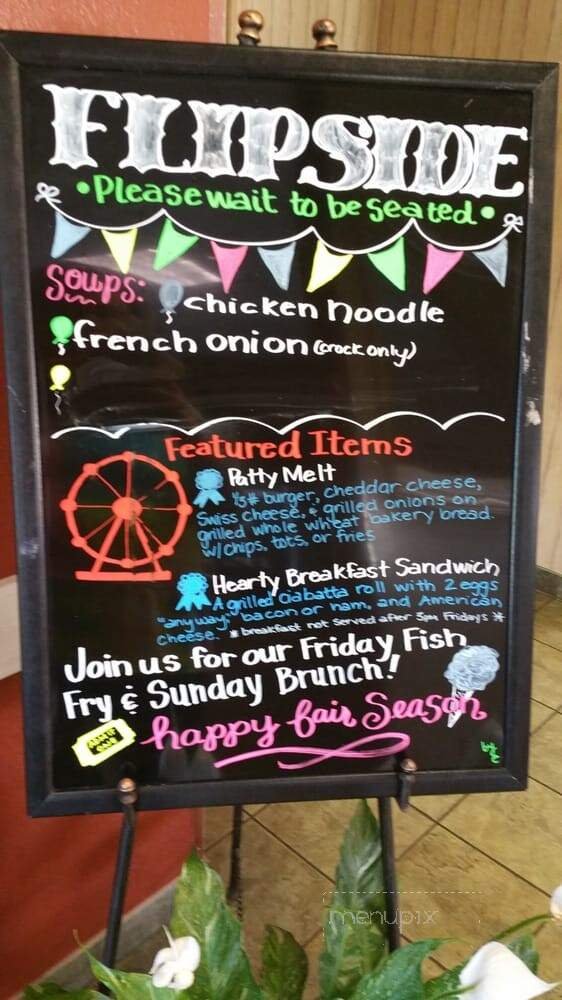 FLIPSIDE
• Please wait to be seated •
Soups: chicken noodle
french onion (crock only)
Featured Items
Patty Melt
1/3# burger, cheddar cheese,
Swiss cheese, & grilled onions on
grilled whole wheat bakery bread.
w/chips, tots, or fries
Hearty Breakfast Sandwich
A grilled ciabatta roll with 2 eggs
"any way," bacon or ham, and American
cheese. * breakfast not served after 3pm Fridays *
Join us for our Friday Fish
Fry & Sunday Brunch!
ADMIT ONE
happy fair Season
menupix